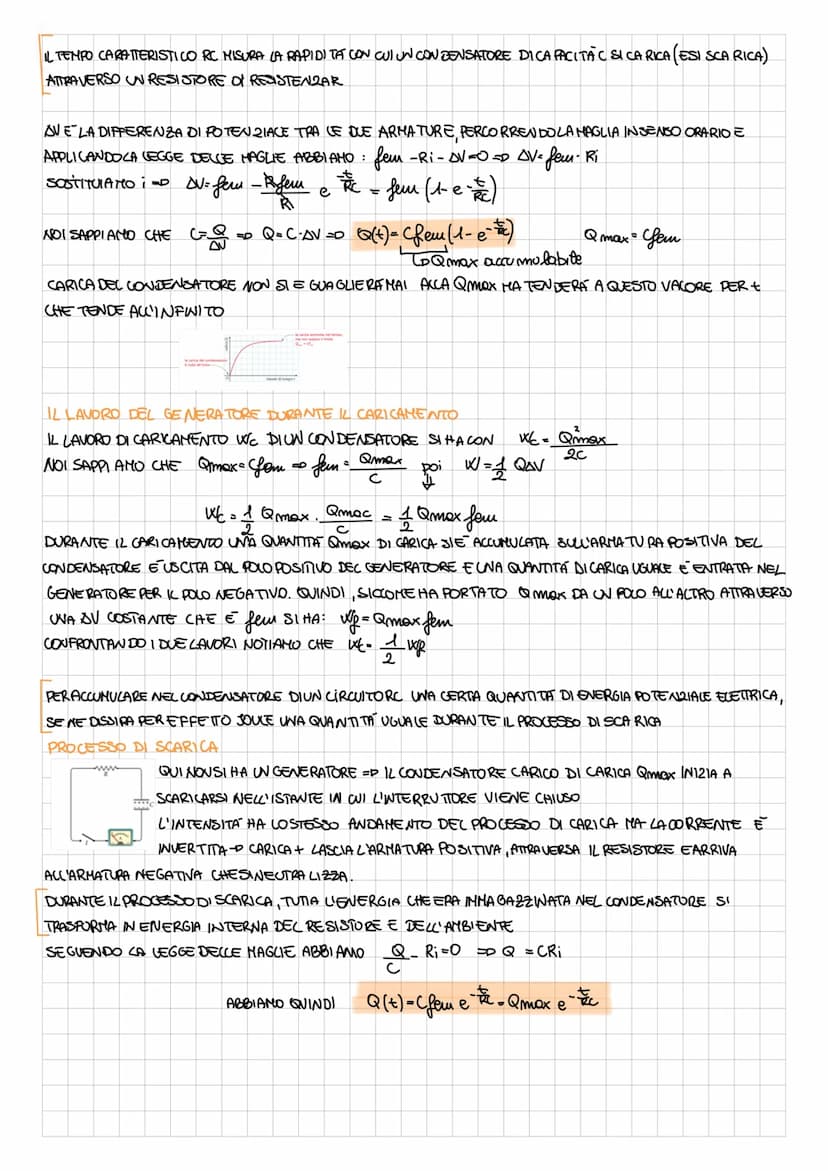 IL TEMPO CARATTERISTICO RC MISURA LA RAPIDITÀ CON CUI UN CONDENSATORE DI CAPACITÀ C SI CARICA (E SI SCARICA)
ATTRAVERSO UN RESISTORE DI RESISTENZA R
ΔV È LA DIFFERENZA DI POTENZIALE TRA LE DUE ARMATURE, PERCORRENDO LA MAGLIA IN SENSO ORARIO E
APPLICANDO LA LEGGE DELLE MAGLIE ABBIAMO: fem - Ri - ΔV = 0 => ΔV = fem - Ri
SOSTITUIAMO i => ΔV = fem - R fem/R e^-t/RC = fem (1 - e^-t/RC)
NOI SAPPIAMO CHE C = Q/ΔV => Q = C·ΔV => Q(t) = Cfem (1 - e^-t/RC) Qmax = Cfem
↳ Qmax accumulabile
CARICA DEL CONDENSATORE NON SI EGUAGLIERÀ MAI ALLA Qmax MA TENDERÀ A QUESTO VALORE PER t
CHE TENDE ALL'INFINITO
IL LAVORO DEL GENERATORE DURANTE IL CARICAMENTO
IL LAVORO DI CARICAMENTO Wc DI UN CONDENSATORE SI HA CON Wc = Q²max/2C
NOI SAPPIAMO CHE Qmax = Cfem => fem = Qmax/C poi W = 1/2 QΔV
Wc = 1/2 Qmax · Qmac/C = 1/2 Qmax fem
DURANTE IL CARICAMENTO UNA QUANTITÀ Qmax DI CARICA SI È ACCUMULATA SULL'ARMATURA POSITIVA DEL
CONDENSATORE È USCITA DAL POLO POSITIVO DEL GENERATORE E UNA QUANTITÀ DI CARICA UGUALE È ENTRATA NEL
GENERATORE PER IL POLO NEGATIVO. QUINDI, SICCOME HA PORTATO Qmax DA UN POLO ALL'ALTRO ATTRAVERSO
UNA ΔV COSTANTE CHE È fem SI HA: Wp = Qmax fem
CONFRONTANDO I DUE LAVORI NOTIAMO CHE Wc = 1/2 Wp
PER ACCUMULARE NEL CONDENSATORE DI UN CIRCUITO RC UNA CERTA QUANTITÀ DI ENERGIA POTENZIALE ELETTRICA,
SE NE DISSIPA PER EFFETTO JOULE UNA QUANTITÀ UGUALE DURANTE IL PROCESSO DI SCARICA
PROCESSO DI SCARICA
QUI NON SI HA UN GENERATORE => IL CONDENSATORE CARICO DI CARICA Qmax INIZIA A
SCARICARSI NELL'ISTANTE IN CUI L'INTERRUTTORE VIENE CHIUSO
L'INTENSITÀ HA LO STESSO ANDAMENTO DEL PROCESSO DI CARICA MA LA CORRENTE È
INVERTITA → CARICA + LASCIA L'ARMATURA POSITIVA, ATTRAVERSA IL RESISTORE E ARRIVA
ALL'ARMATURA NEGATIVA CHE SI NEUTRALIZZA.
DURANTE IL PROCESSO DI SCARICA, TUTTA L'ENERGIA CHE ERA IMMAGAZZINATA NEL CONDENSATORE SI
TRASFORMA IN ENERGIA INTERNA DEL RESISTORE E DELL'AMBIENTE
SEGUENDO LA LEGGE DELLE MAGLIE ABBIAMO Q/C - Ri = 0 => Q = CRi
ABBIAMO QUINDI Q(t) = Cfem e^-t/RC = Qmax e^-t/RC